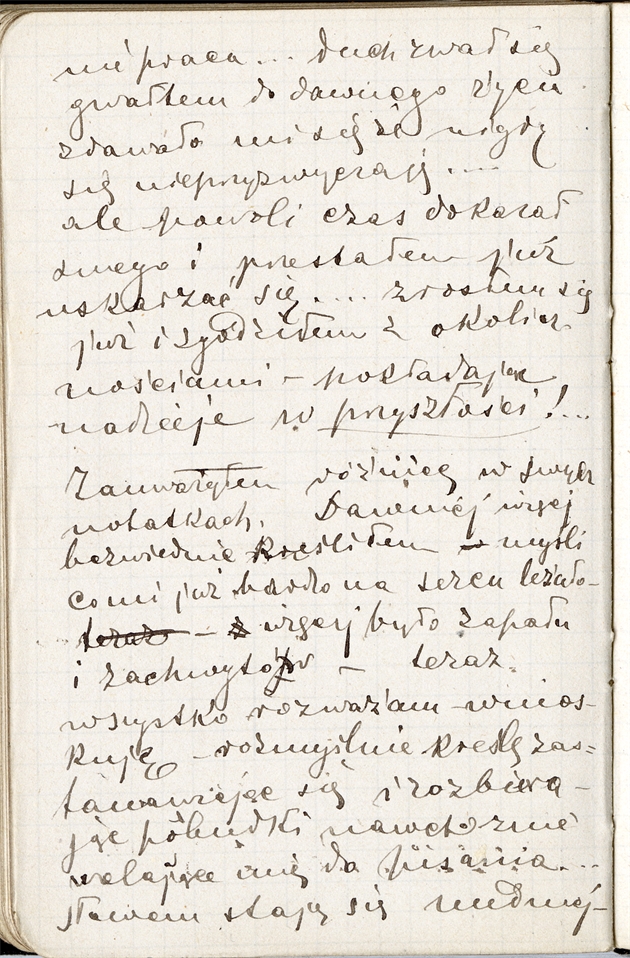 nie praca... Duch rwał się
gwałtem do dawnego życia
zdawało mi się że nigdy
się nieprzyzwyczaję....
ale powoli czas dokazał
swego i przestałem już
uskarżać się.... zrosłem się
już i zgodziłem z okolicz-
nościami – pokładając
nadzieje w przyszłości!...
Zauważyłem różnicę w swych
notatkach. Dawniej więcej
bezwiednie kreśliłem myśli
co mi już bardzo na sercu leżało –
teraz – więcej było zapału
i zachwytów – teraz
wszystko rozważam – wnios-
kuję – rozmyślnie kreślę zas-
tanawiając się i rozbiera-
jąc pobudki nawet
mię do pisania...
słowem staję się